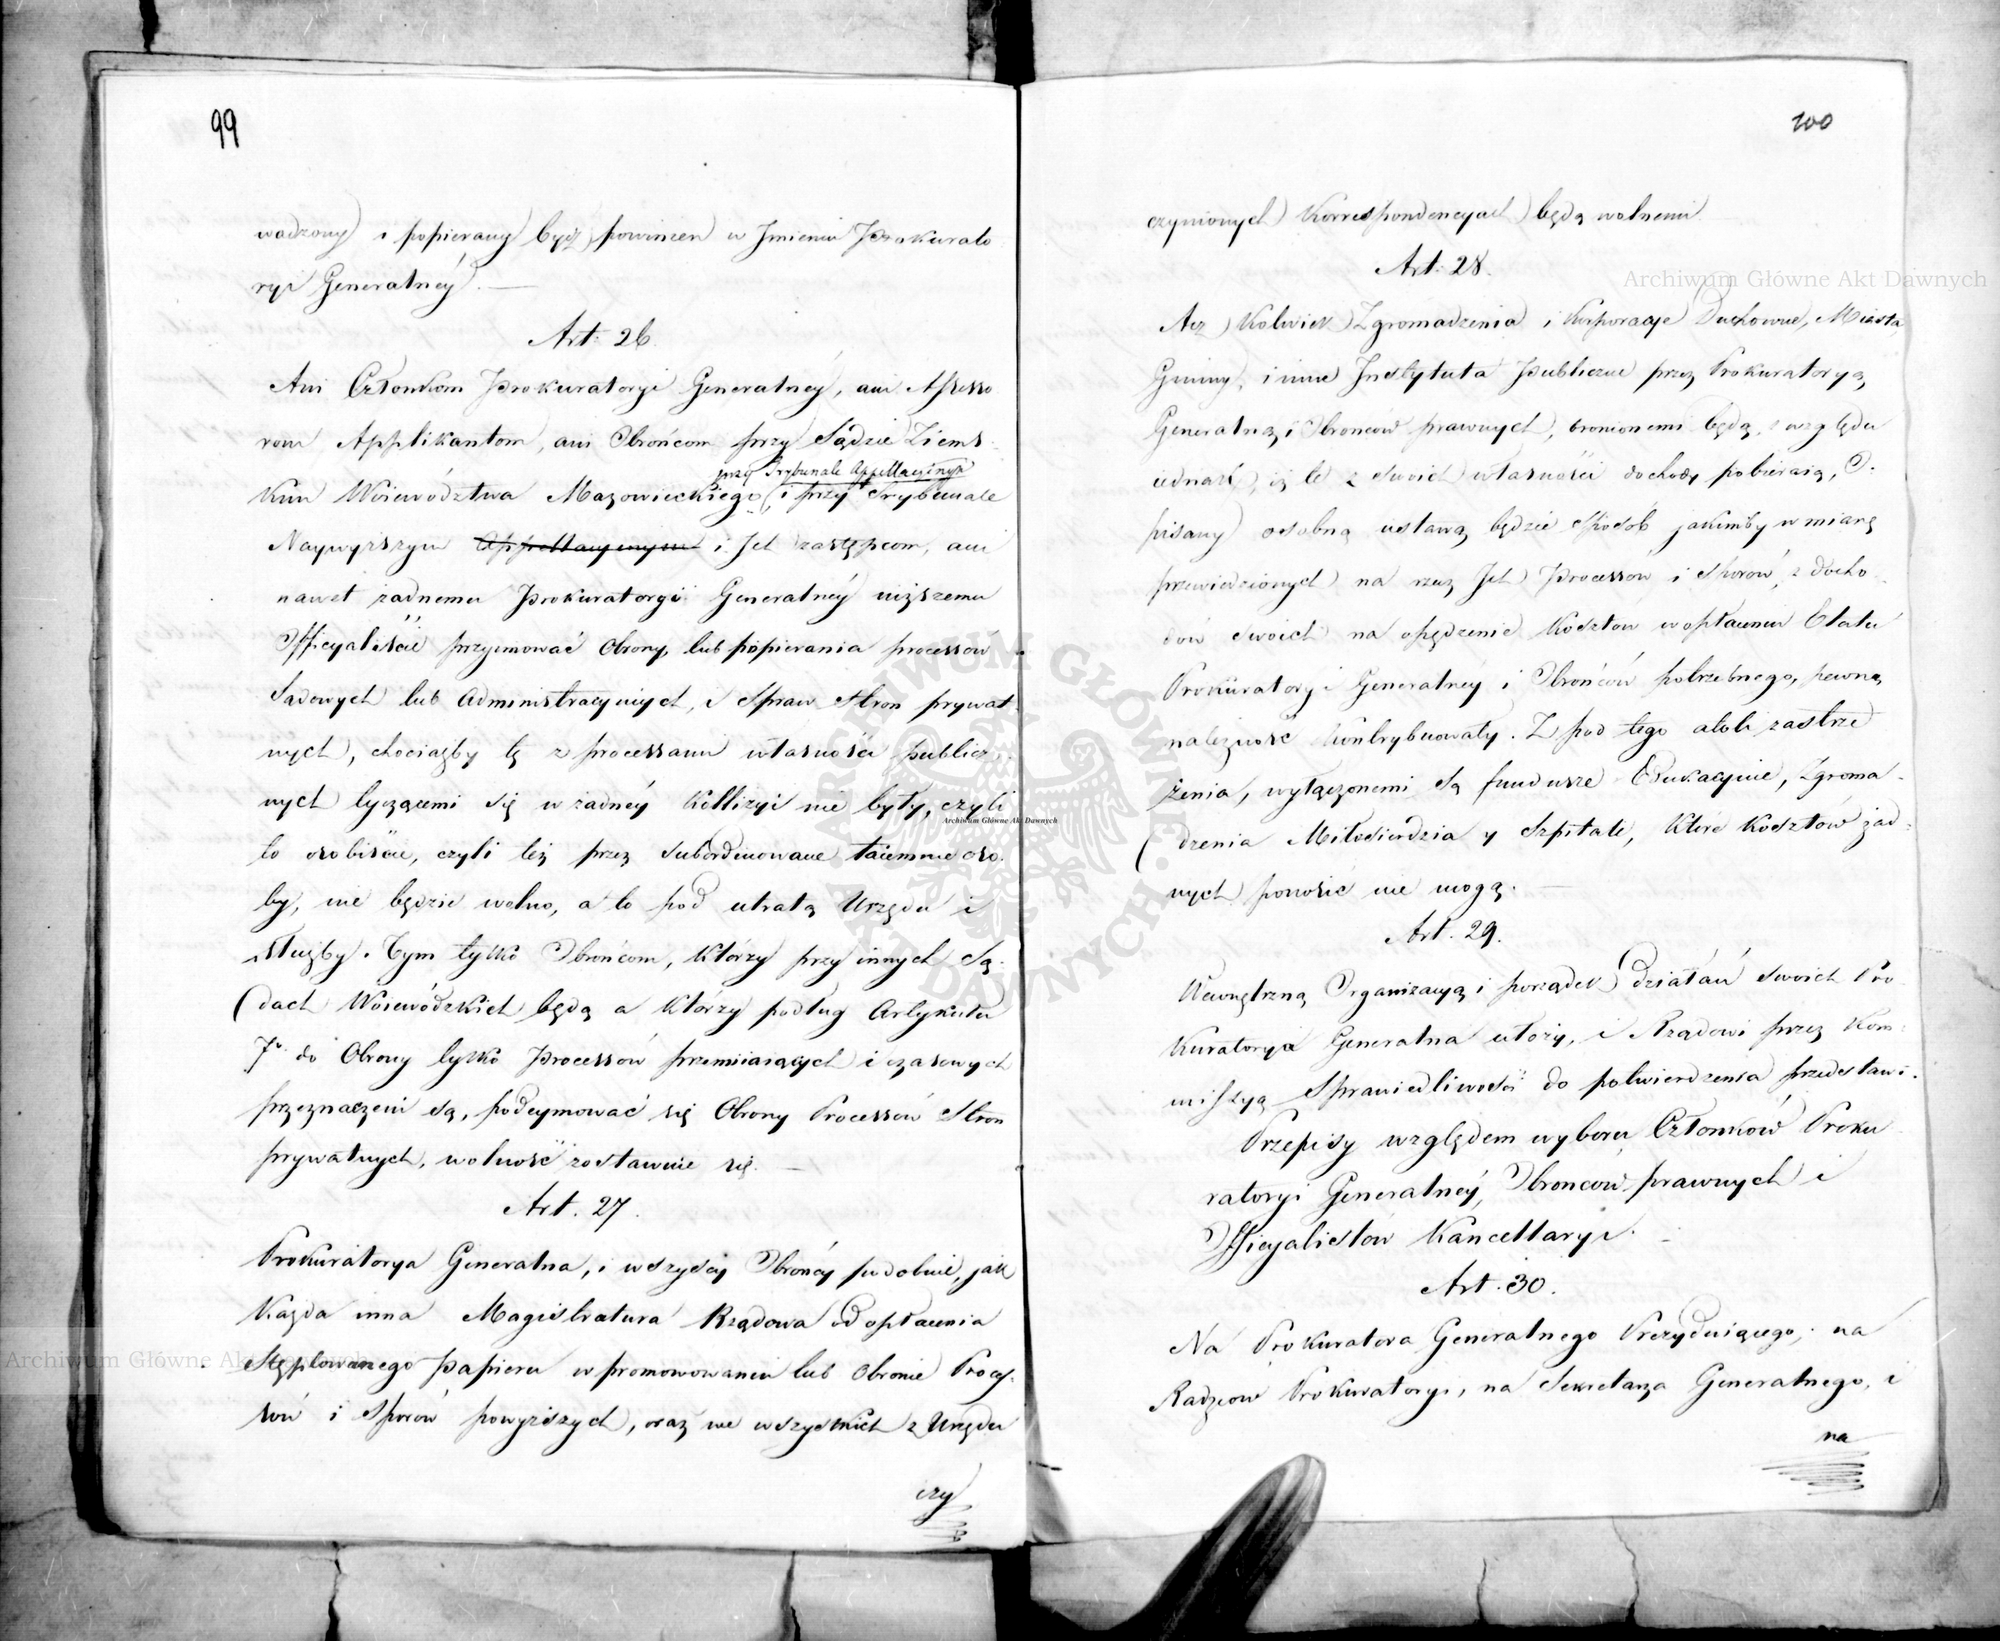 99
wadzony i popierany być powinien w Jmieniu Prokurato
ryi Generalnéy. —
Art: 26.
Ani Członkom Prokuratoryi Generalnéy, ani Assesso
rom Applikantom, ani Obrońcom przy Sądzie Ziems-
przy Trybunale Appellacyinym
kim Woiewództwa Mazowieckiego, i przy Trybunale
Naywyższym Appellacyinym i Jch zastępcom, ani
nawet żadnemu Prokuratoryi Generalnéy niższemu
Officyaliście przyimować Obrony, lub popierania processów
Sądowych lub Administracyinych, i Spraw Stron prywat-
nych, chociażby te z processami własności publicz-
nych łyczącemi się w żadnéy kollizyi nie były, czyli
to osobiście, czyli też przez subordinowane taiemnie oso-
by, nie będzie wolno, a to pod utratą Urzędu i
służby. Tym tylko Obrońcom, którzy przy innych Są-
dach Woiewódzkich będą a którzy podług Artykułu
7o do Obrony tylko Processów przemiiaiących i czasowych
przeznaczeni są, podeymować się Obrony Processów Stron
prywatnych, wolność zostawuie się. —
Art. 27.
Prokuratorya Generalna, i wszyscy Obrońcy podobnie, jak
każda inna Magistratura Rządowa od opłacenia
Stęplowanego papieru w promowowaniu lub Obronie Proces-
sów i Sporów powyższych, oraz we wszystkich z Urzędu
czy
100
czynionych Korrespondencyach będą wolnemi.
Art: 28.
Acz kolwiek Zgromadzenia i Korporacye Duchowne, Miasta
Gminy, i inne Jnstytuta Publiczne przez Prokuratoryą
Generalną i Obrońców prawnych, bronionemi będą, z względu
iednak, iż te z swoich własności dochody pobieraią, O-
pisany osobną ustawą będzie sposób jakimby w miarę
przewiedzionych na rzecz Jch Processów i Sporów, z docho-
dów swoich na opędzenie Kosztów w opłaceniu Etatu
Prokuratoryi Generalnéy i Obrońców potrzebnego, pewną
należność kontrybuowały. Z pod tego atoli zastrze
żenia, wyłączonemi są fundusze Edukacyine, Zgroma-
dzenia Miłosierdzia y Szpitale, które kosztów żad-
nych ponosić nie mogą. —
Art. 29.
Wewnętrzną Organizacyą i porządek działań swoich Pro-
kuratorya Generalna ułoży, i Rządowi przez Kom-
missyą Sprawiedliwości do potwierdzenia przedstawi.
Przepisy względem wyboru Członków Proku
ratoryi Generalnéy, Obrońców prawnych i
Officyalistów Kancellaryi.
Art. 30.
Na Prokuratora Generalnego Prezyduiącego, na
Radzców Prokuratoryi, na Sekretarza Generalnego, i
na
Archiwum Główne Akt Dawnych
Archiwum Główne Akt Dawnych
Archiwum Główne Akt Dawnych
ARCHIWUM GŁÓWNE AKT DAWNYCH